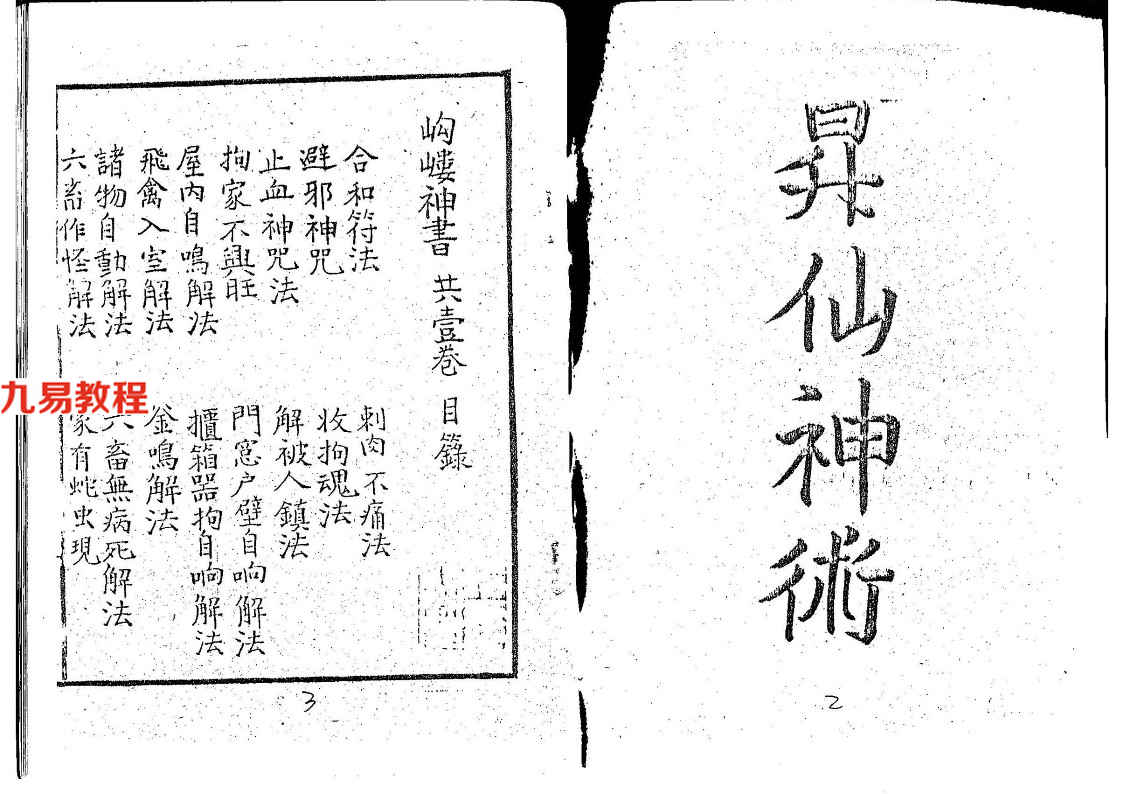 昇仙神術
2
岣嶁神書 共壹卷 目錄
合和符法 刺肉不痛法
避邪神咒 收拘魂法
止血神咒法 解被人鎮法
拘家不興旺 門窓户壁自响解法
屋内自鳴解法 櫃箱器拘自响解法
飛禽入室解法 釜鳴解法
諸物自動解法 六畜無病死解法
六畜作怪解法 家有蛇虫現
3
九易教程